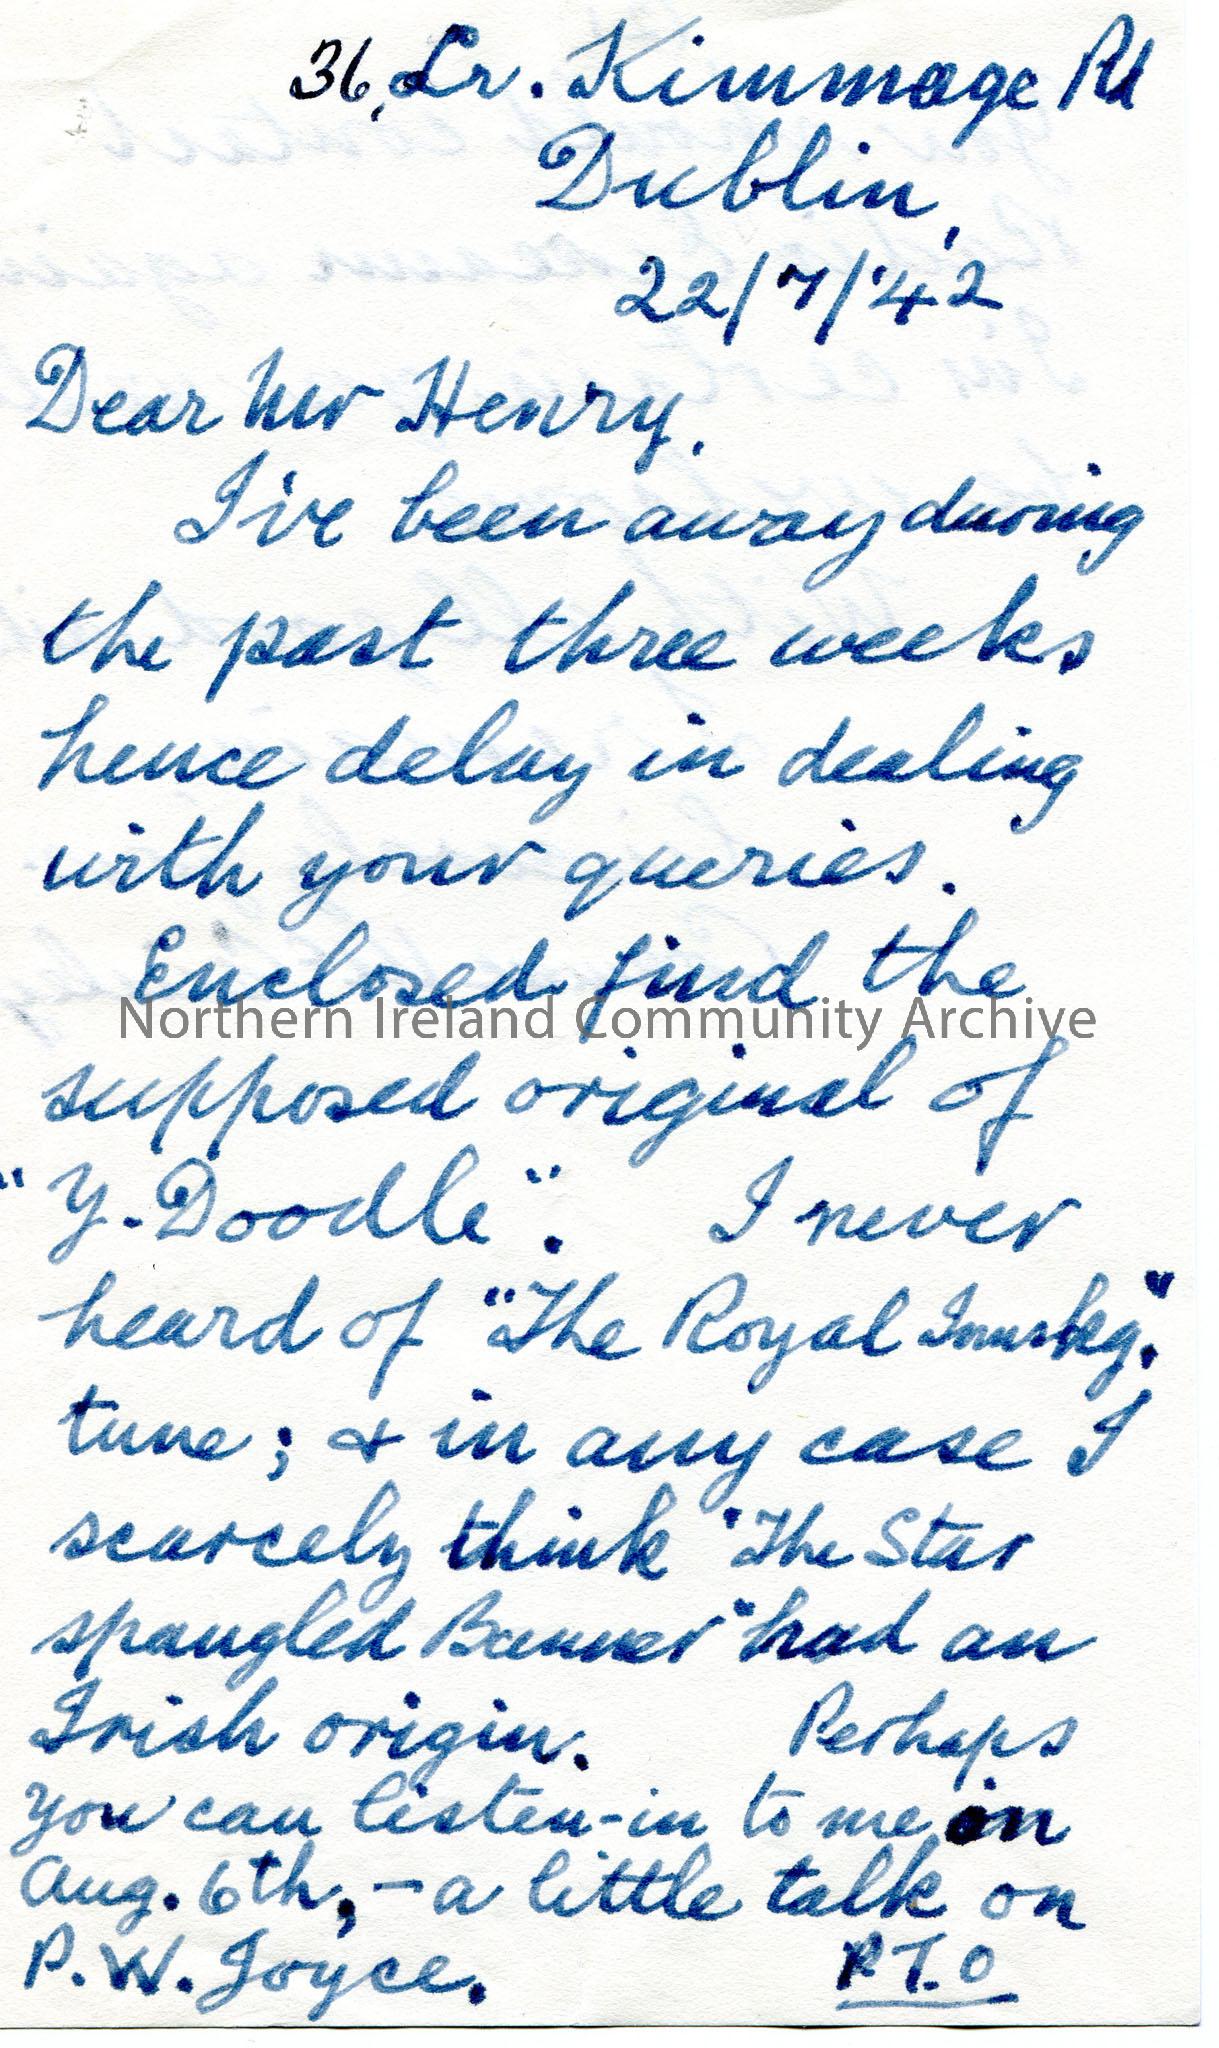 36, Lr. Kimmage Rd
Dublin,
22/7/'42
Dear Mr Henry,
I've been away during
the past three weeks
hence delay in dealing
with your queries.
Enclosed find the
Northern Ireland Community Archive
supposed original of
"Y. Doodle". I never
heard of "The Royal Innskg."
tune; & in any case I
scarcely think "The Star
spangled Banner" had an
Irish origin. Perhaps
you can listen-in to me on
Aug. 6th, - a little talk on
P.W. Joyce. P.T.O